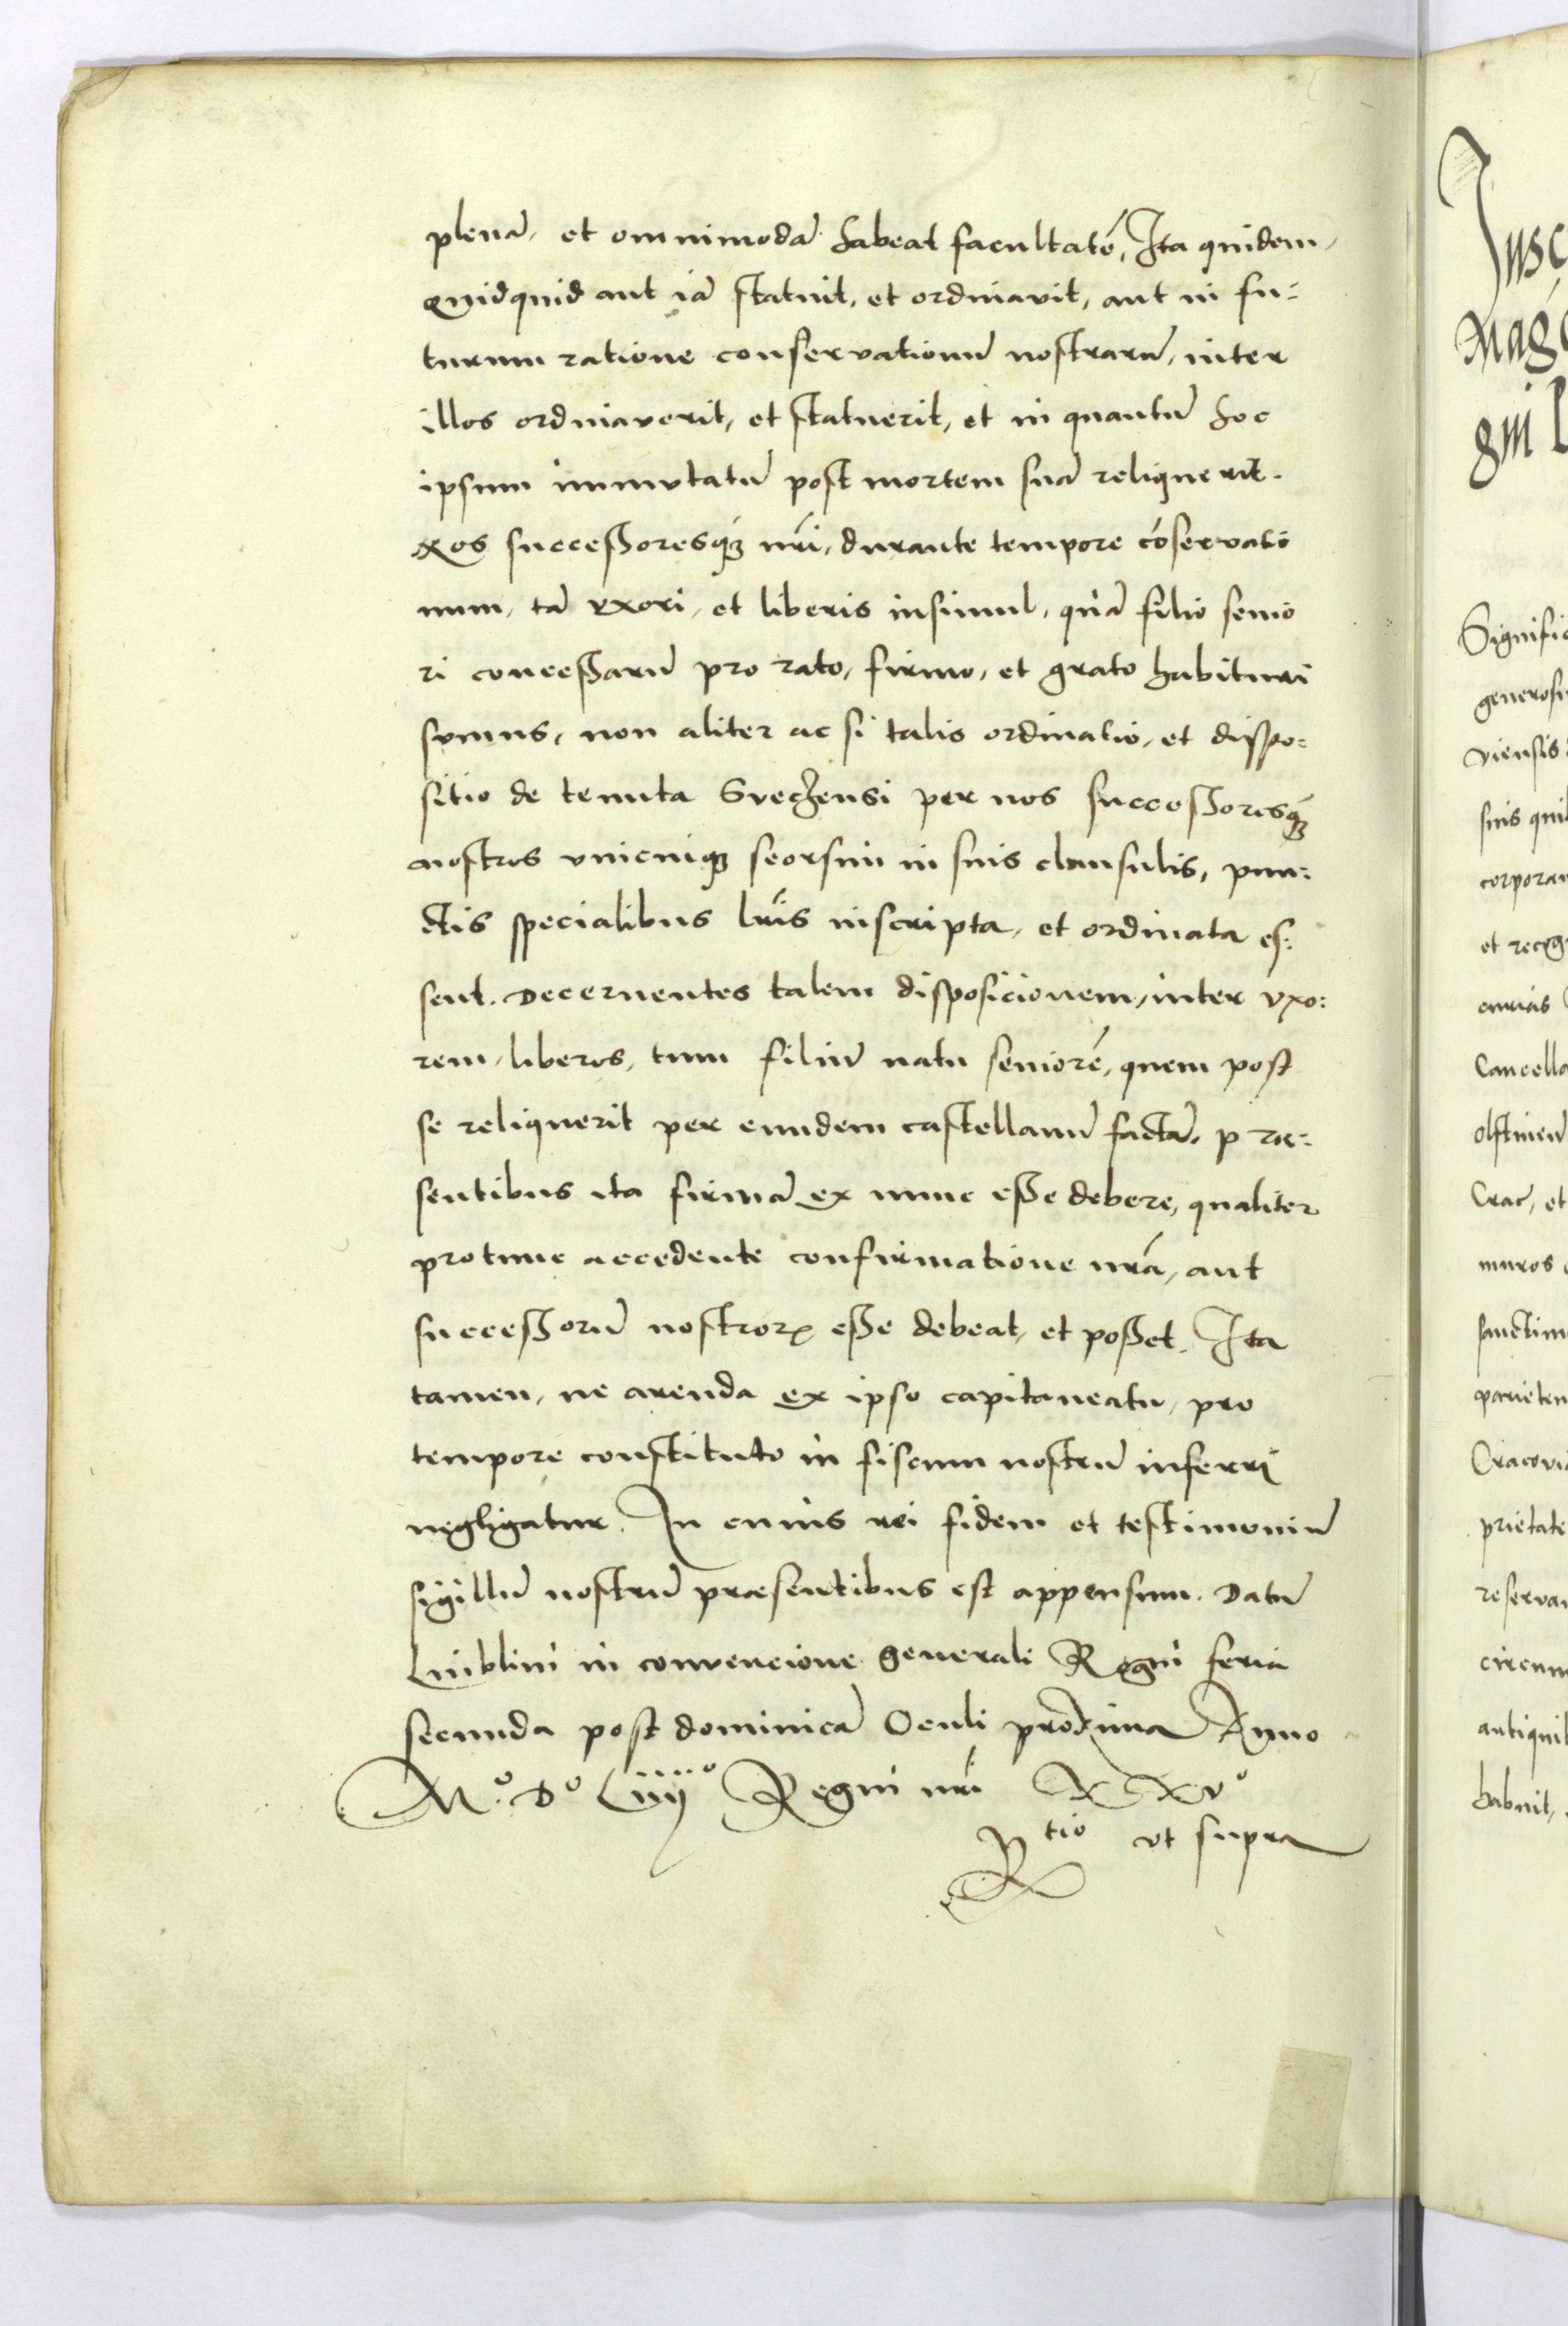 plenā, et omnimodā habeat facultatē, Ita quidem,
quidquid aut iā statuit, et ordinavit, aut in fu-
turum ratione conservationū nostrarū, inter
illos ordinaverit, et statuerit, et in quantū hoc
ipsum immutatū post mortem suā reliquerit.
Nos successoresq́ꝫ nr̃i, durante tempore cōservatio
num, tā uxori, et liberis insimul, quā filio senio
ri concessarū pro rato, firmo, et grato habituri
sumus, non aliter ac si talis ordinatio, et dispo-
sitio de tenuta Srzechensi per nos successoresq́ꝫ
nostros unicuiqꝫ seorsim in suis clausulis, pun-
ctis specialibus lr̃is inscripta, et ordinata es-
sent. Decernentes talem disposicionem, inter uxo-
rem, liberos, tum filiū natu seniorē, quem post
se reliquerit per eundem castellanū factā, præ-
sentibus ita firmā ex nunc esse debere, qualiter
protunc accedente confirmatione nr̃a, aut
successorū nostroꝝ esse debeat, et posset. Ita
tamen, ne arenda ex ipso capitaneatu, pro
tempore constituto in fiscum nostrū inferri
negligatur. In cuius rei fidem et testimoniū
sigillū nostrū præsentibus est appensum. Datū
Lublini in convencione generali Regni feria
secunda post dominicā Oculi proxima Anno
Mº. Dº Liiijº Regni nr̃i XXVº
Rtio ut supra
Insc
Mag
gni l
Signific
generosu
viensis
suis qui
corporan
et recog
curias
Cancella
olstinen
Crac, et
muros
sanctim
parieten
Cracovi
prietate
reservan
circum
antiquit
habuit,